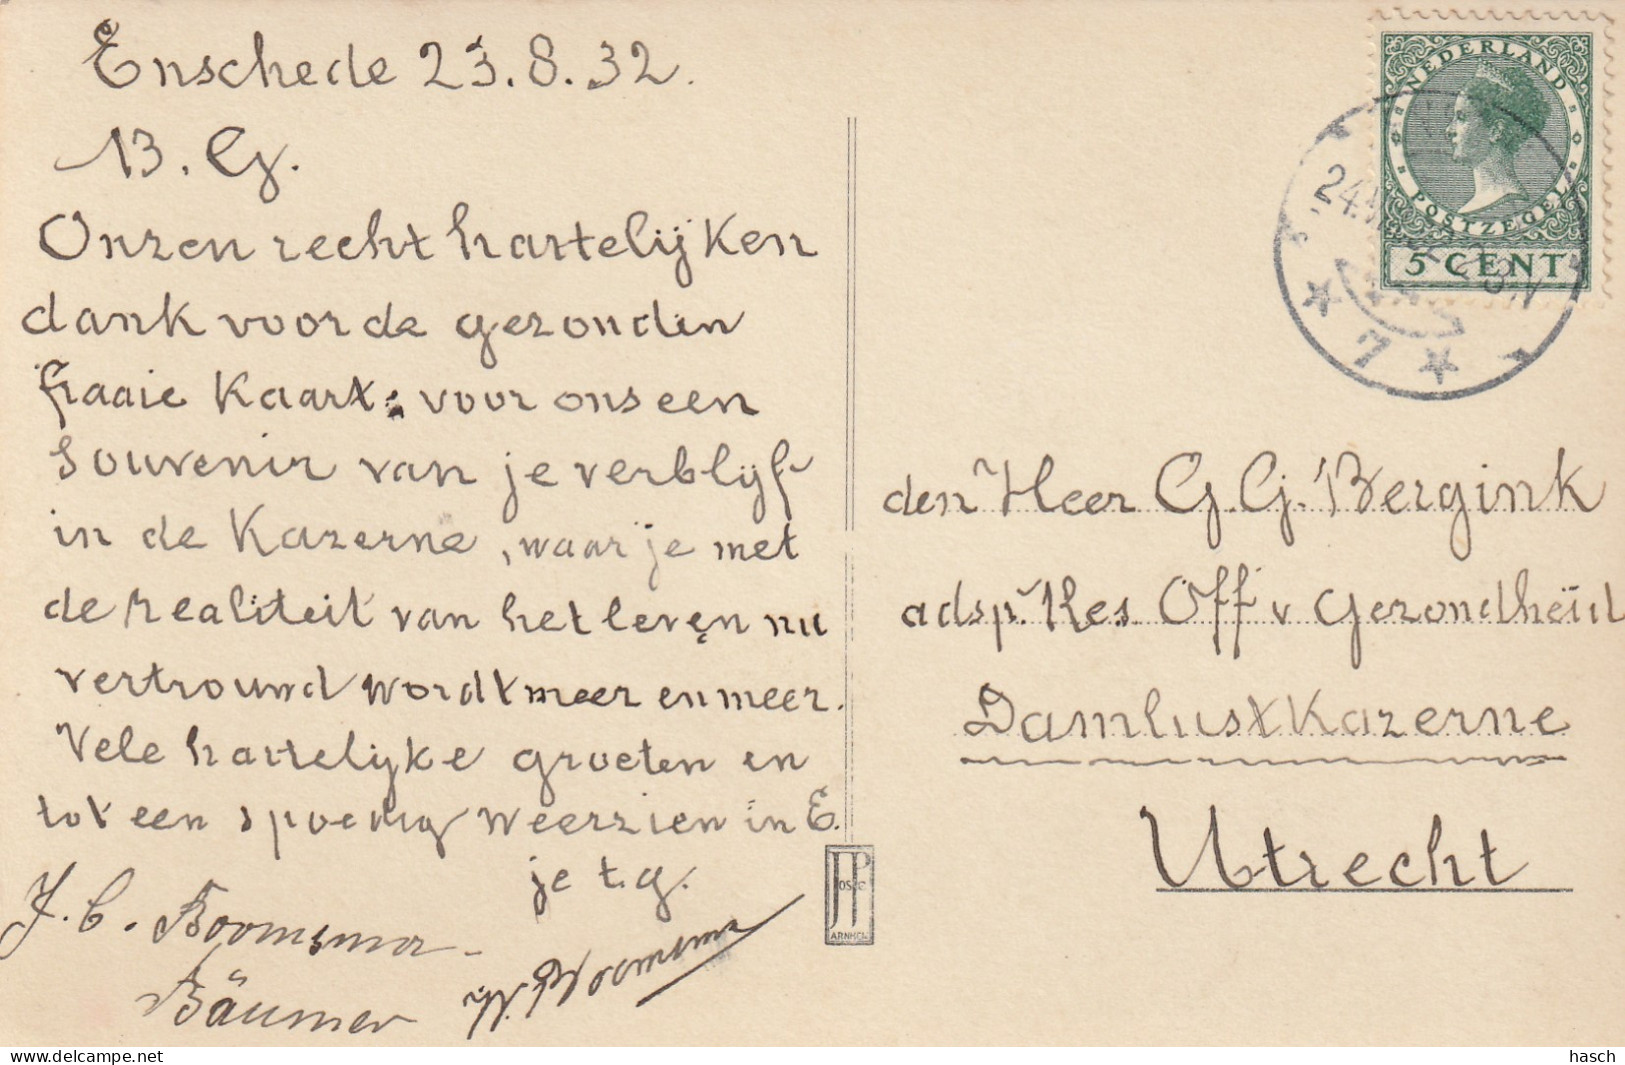 Enschede 23.8.32.
B. G.
Onzen recht hartelijken
dank voor de gezonden
fraaie kaart; voor ons een
souvenir van je verblijf
in de Kazerne, waar je met
de realiteit van het leven nu
vertrouwd wordt meer en meer.
Vele hartelijke groeten en
tot een spoedig weerzien in E.
je t.g.
J. C. Boomsma-
Bäumer
W. Boomsma
JosPé
ARNHEM
NEDERLAND
POSTZEGEL
5 CENT
24.
7
den Heer G. G. Bergink
adsp. Res. Off v Gezondheid
Damlust Kazerne
Utrecht
hasch